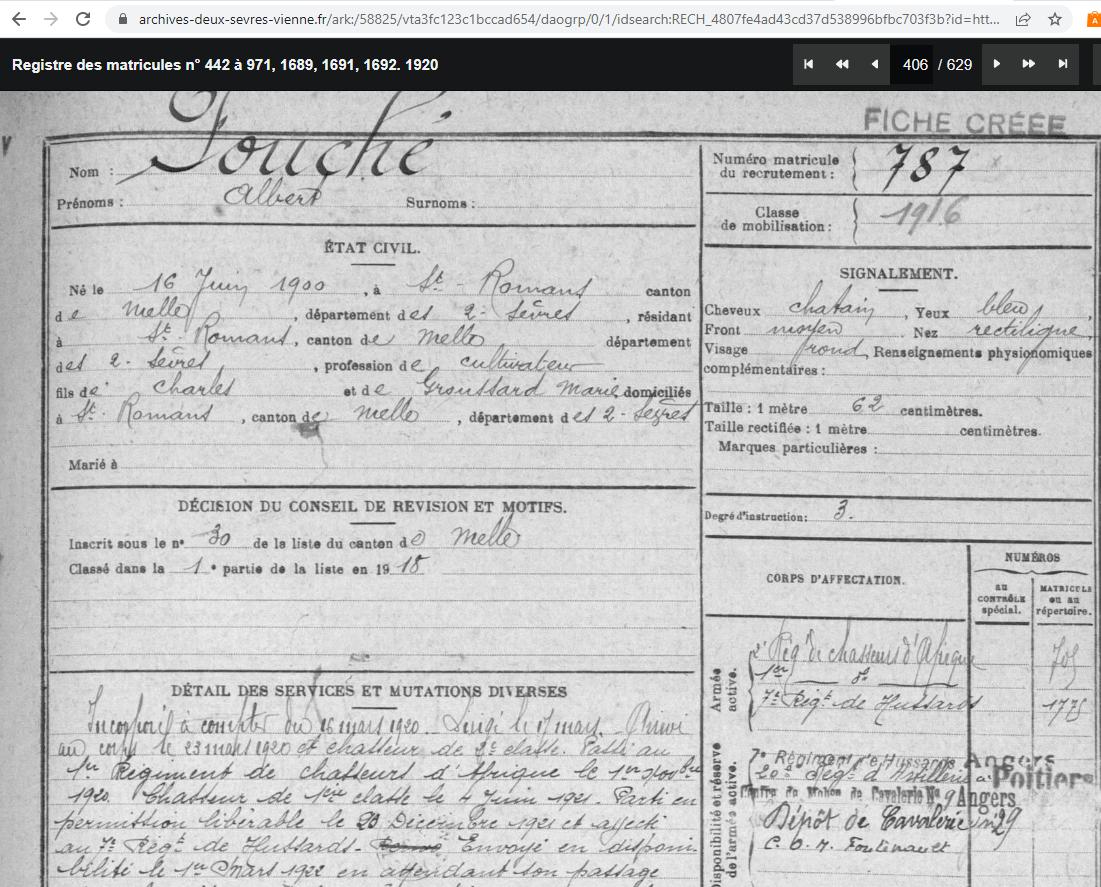 archives-deux-sevres-vienne.fr/ark:/58825/vta3fc123c1bccad654/daogrp/0/1/idsearch:RECH_4807fe4ad43cd37d538996bfbc703f3b?id=htt...
Registre des matricules n° 442 à 971, 1689, 1691, 1692. 1920
406 / 629
FICHE CRÉÉE
Nom : Fouché
Prénoms : Albert Surnoms :
Numéro matricule
du recrutement : 787
Classe
de mobilisation : 1916
ÉTAT CIVIL.
Né le 16 Juin 1900, à St. Romans canton
de Melle, département des 2-Sèvres, résidant
à St. Romans, canton de Melle département
des 2-Sèvres, profession de cultivateur
fils de Charles et de Groussard Marie domiciliés
à St. Romans, canton de Melle, département des 2-Sèvres
Marié à
SIGNALEMENT.
Cheveux chatain, Yeux bleu,
Front moyen Nez rectiligne,
Visage rond, Renseignements physionomiques
complémentaires :
Taille : 1 mètre 62 centimètres.
Taille rectifiée : 1 mètre centimètres.
Marques particulières :
Degré d'instruction : 3.
DÉCISION DU CONSEIL DE REVISION ET MOTIFS.
Inscrit sous le n° 30 de la liste du canton de Melle
Classé dans la 1e partie de la liste en 1918
CORPS D'AFFECTATION.
NUMÉROS
au
CONTRÔLE
spécial.
MATRICULE
ou au
répertoire.
Armée
active.
2e Régt de chasseurs d'Afrique 705
1er do
7e Régt de Hussards 1775
Disponibilité et réserve
de l'armée active.
7e Régiment de Hussards Angers
20e Régt d'Artillerie à Poitiers
Centre de Mobon de Cavalerie No 9 Angers
Dépôt de Cavalerie n° 29
C. O. M. Fontenaut
DÉTAIL DES SERVICES ET MUTATIONS DIVERSES
Incorporé à compter du 16 mars 1920. Dirigé le 17 mars. Arrivé
au corps le 23 mars 1920 et chasseur de 2e classe. Passé au
1er Régiment de chasseurs d'Afrique le 1er octobre
1920. Chasseur de 1ère classe le 4 Juin 1921. Parti en
permission libérable le 20 Décembre 1921 et affecté
au 7e Régt de Hussards. Envoyé en disponi-
bilité le 1er Mars 1922 en attendant son passage